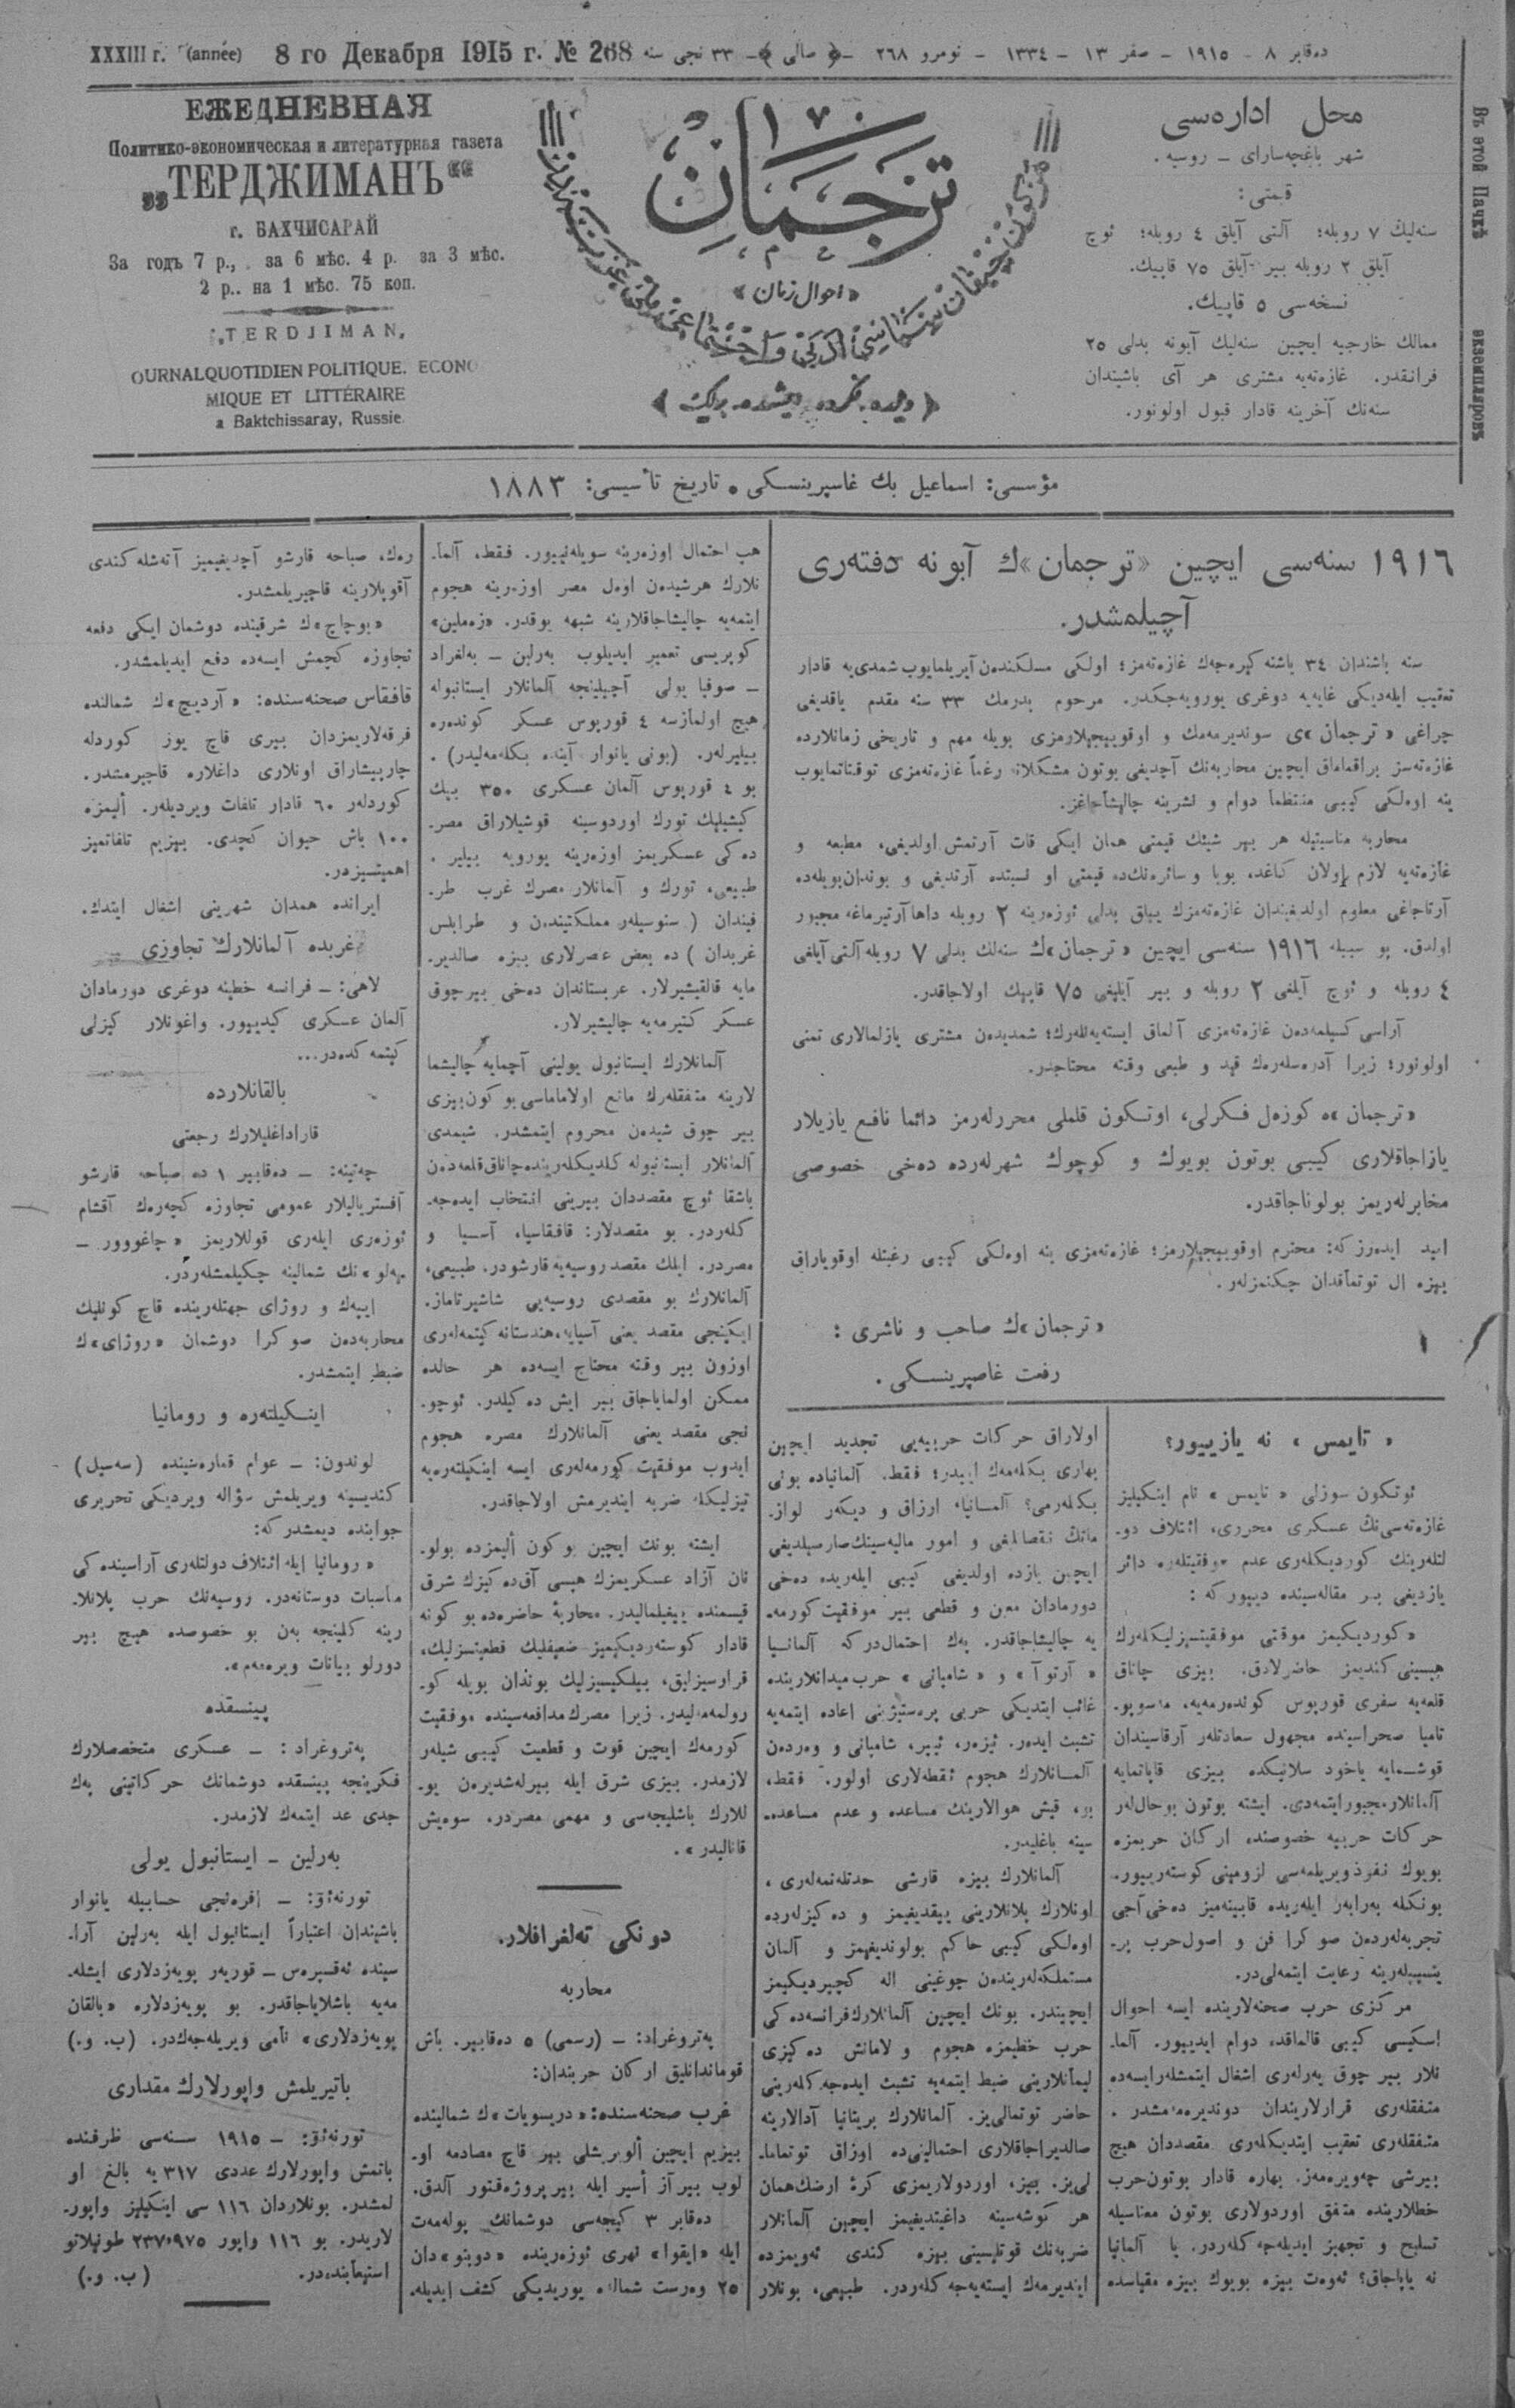 XXXIII г. (année) 8 го Декабря 1915 г. № 268
ده‌قابر ٨ – ١٩١٥ – صفر ١٣ – ١٣٣٤ – نومرو ٢٦٨ –﴿ صالی ﴾– ٣٣ نجی سنه
ЕЖЕДНЕВНАЯ
Политико-экономическая и литературная газета
„ТЕРДЖИМАНЪ“
г. БАХЧИСАРАЙ
За годъ 7 р., за 6 мѣс. 4 р. за 3 мѣс.
2 р.. на 1 мѣс. 75 коп.
„TERDJIMAN„
OURNALQUOTIDIEN POLITIQUE. ECONO
MIQUE ET LITTÉRAIRE
a Baktchissaray, Russie.
ترجمان
«احوال زمان»
محل اداره‌سی
شهر باغچه‌سارای – روسیه.
قیمتی:
سنه‌لیڭ ٧ روبله؛ آلتی آیلق ٤ روبله؛ ئوچ
آیلق ٢ روبله بیر آیلق ٧٥ قاپیك.
نسخه‌سی ٥ قاپیك.
ممالك خارجیه ایچین سنه‌لیك آبونه بدلی ٢٥
فرانقدر. غازه‌ته‌یه مشتری هر آی باشیندان
سنه‌نك آخرینه قادار قبول اولونور.
Въ этой Пачкѣ
экземпляровъ
مؤسسی: اسماعیل بك غاسپرینسكی • تاریخ تأسیسی: ١٨٨٣
١٩١٦ سنه‌سی ایچین «ترجمان»ك آبونه دفته‌ری
آچیلمشدر.
سنه باشندان ٣٤ یاشنه كیره‌جه‌ك غازه‌ته‌مز؛ اولكی مسلكندن آیریلمایوب شمدی‌یه قادار
تعقیب ایله‌دیكی غایه‌یه دوغری یورویه‌جكدر. مرحوم بدرمك ٣٣ سنه مقدم یاقدیغی
چراغی «ترجمان»ی سوندیرمه‌مك و اوقویوچیلارمزی بویله مهم و تاریخی زمانلارده
غازه‌ته‌سز براقماماق ایچین محاربه‌نك آچدیغی بوتون مشكلاته رغماً غازه‌ته‌مزی توقتاتمایوب
ینه اوه‌لكی كیبی منتظماً دوام و نشرینه چالیشاجاغز.
محاربه مناسبتیله هر بیر شیئك قیمتی همان ایكی قات آرتمش اولدیغی، مطبعه و
غازه‌ته‌یه لازم اولان كاغد، بویا و سائره‌نك‌ده قیمتی او نسبتده آرتدیغی و بوندان‌بویله‌ده
آرتاجاغی معلوم اولدیغیندان غازه‌ته‌مزك ییللق بدلی ئوزه‌رینه ٢ روبله داها آرتیرماغه مجبور
اولدق. بو سببله ١٩١٦ سنه‌سی ایچین «ترجمان»ك سنه‌لك بدلی ٧ روبله آلتی آیلغی
٤ روبله و ئوچ آیلغی ٢ روبله و بیر آیلیغی ٧٥ قاپیك اولاجاقدر.
آراسی كسیلمه‌دن غازه‌ته‌مزی آلماق ایسته‌یه‌نله‌رك؛ شمدیدن مشتری یازلمالاری تمنی
اولونور؛ زیرا آدره‌سله‌رك قید و طبعی وقته محتاجدر.
«ترجمان»ه كوزه‌ل فكرلی، اوتكون قلملی محررله‌رمز دائما نافع یازیلار
یازاجاقلاری كیبی بوتون بویوك و كوچوك شهرله‌رده ده‌خی خصوصی
مخابرله‌ریمز بولوناجاقدر.
امید ایده‌رز كه: محترم اوقویوچیلارمز؛ غازه‌ته‌مزی ینه اوه‌لكی كیبی رغبتله اوقویاراق
بیزه ال توتماقدان چكنمزله‌ر.
«ترجمان»ك صاحب و ناشری:
رفعت غاصپرینسكی.
«تایمس» نه یازییور؟
ئوتكون سوزلی «تایمس» نام اینكیلیز
غازه‌ته‌سی‌نك عسكری محرری، ائتلاف دو-
لتله‌رینك كوردیكله‌ری عدم موفقیتله‌ره دائر
یازدیغی بر مقاله‌سینده دییور كه:
«كوردیكیمز موقتی موفقیتسیزلیكله‌رك
هپسینی كندیمز حاضرلادق. بیزی چاناق
قلعه‌یه سفری قورپوس كونده‌رمه‌یه، مه‌سوپو-
تامیا صحراسینده مجهول سعادتله‌ر آرقاسیندان
قوشمایه یاخود سلانیكده بیزی قاپاتمایه
آلمانلار مجبور ایتمه‌دی. ایشته بوتون بو حال‌لر
حركات حربیه خصوصنده اركان حربمزه
بویوك نفوذ ویریلمه‌سی لزومینی كوسته‌رییور.
بونكله به‌رابه‌ر ایله‌ریده قابینه‌میز ده‌خی آجی
تجربه‌له‌ردن صوكرا فن و اصول حرب پر-
ینسیپله‌رینه رعایت ایتمه‌لی‌در.
مركزی حرب صحنه‌لارینده ایسه احوال
اسكیسی كیبی قالماقده دوام ایدییور. آلما-
نلار بیر چوق یه‌رله‌ری اشغال ایتمشله‌رایسه‌ده
متفقله‌ری قرارلاریندان دوندیره‌مه‌مشدر.
متفقله‌ری تعقیب ایتدیكله‌ری مقصددان هیچ
بیرشی چه‌ویره‌مه‌ز. بهاره قادار بوتون حرب
خطلارینده متفق اوردولاری بوتون معناسیله
تسلیح و تجهیز ایدیله‌جه‌كله‌ردر. یا آلمانیا
نه یاپاجاق؟ ئه‌وه‌ت بیزه بویوك بیزه مقیاسده
اولاراق حركات حربیه‌یی تجدید ایچین
بهاری بكله‌مه‌ك ابیدر؛ فقط، آلمانیاده بونی
بكله‌رمی؟ آلمانیا، ارزاق و دیكه‌ر لواز-
ماتك نقصانلغی و امور مالیه‌سینك‌صارصیلدیغی
ایچین یازده اولدیغی كیبی ایله‌ریده ده‌خی
دورمادان معین و قطعی بیر موفقیت كورمه-
یه چالیشاجاقدر. پك احتمال‌در كه آلمانیا
«آرتوآ» و «شامپانی» حرب میدانلارینده
غائب ایتدیكی حربی پره‌ستیژینی اعاده ایتمه‌یه
تشبث ایده‌ر. ئیزه‌ر، ئیپر، شامپانی و وه‌ردن
آلمانلارك هجوم نقطه‌لاری اولور. فقط،
بو، قیش هوالارینك مساعده و عدم مساعده-
سینه باغلیدر.
آلمانلارك بیزه قارشی حدتله‌نمه‌له‌ری،
اونلارك پلانلارینی ییقدیغیمز و ده‌كیزله‌رده
اوه‌لكی كیبی حاكم بولوندیغیمز و آلمان
مستملكه‌له‌ریندن چوغینی اله كچیردیكیمز
ایچیندر. بونك ایچین آلمانلارك فرانسه‌ده‌كی
حرب خطیمزه هجوم و لامانش ده‌كیزی
لیمانلارینی ضبط ایتمه‌یه تشبث ایده‌جه‌كله‌رینی
حاضر توتمالی‌یز. آلمانلارك بریتانیا آدالارینه
صالدیراجاقلاری احتمالینی‌ده اوزاق توتماما-
لی‌یز. بیز، اوردولاریمزی كرهٔ ارضك‌همان
هر كوشه‌سینه داغیتدیغیمز ایچین آلمانلار
ضربه‌نك قوتلیسینی بیزه كندی ئه‌ویمزده
ایندیرمه‌ك ایسته‌یه‌جه‌كله‌ردر. طبیعی، بونلار
هپ احتمال اوزه‌رینه سویله‌نییور. فقط، آلما-
نلارك هرشیدن اوه‌ل مصر اوزه‌رینه هجوم
ایتمه‌یه چالیشاجاقلارینه شبهه یوقدر. «زه‌ملین»
كوپریسی تعمیر ایدیلوب به‌رلین – به‌لغراد
– صوفیا یولی آچیلینجه آلمانلار ایستانبوله
هیچ اولمازسه ٤ قورپوس عسكر كونده‌ره
بیلیرله‌ر. (بونی یانوار آینده بكله‌مه‌لیدر).
بو ٤ قورپوس آلمان عسكری ٣٥٠ بیك
كیشیلیك تورك اوردوسینه قوشیلاراق مصر-
ده‌كی عسكریمز اوزه‌رینه یورویه بیلیر.
طبیعی، تورك و آلمانلار مصرك غرب طر-
فیندان (سنوسیلر مملكتیندن و طرابلس
غربدان) ده بعض عصرلاری بیزه صالدیر-
مایه قالقیشیرلار. عربستاندان ده‌خی بیرچوق
عسكر كتیرمه‌یه چالیشیرلار.
آلمانلارك ایستانبول یولینی آچمایه چالیشما
لارینه متفقله‌رك مانع اولاماماسی بو كون‌بیزی
بیر چوق شیدن محروم ایتمشدر. شیمدی
آلمانلار ایستانبوله كلدیكله‌رینده‌چاناق‌قلعه‌دن
باشقا ئوچ مقصددان بیرینی انتخاب ایده‌جه-
كله‌ردر. بو مقصدلار: قافقاسیا، آسیا و
مصردر. ایلك مقصد روسیه‌یه قارشودر. طبیعی،
آلمانلارك بو مقصدی روسیه‌یی شاشیرتاماز.
ایكینجی مقصد یعنی آسیایه، هندستانه كیتمه‌له‌ری
اوزون بیر وقته محتاج ایسه‌ده هر حالده
ممكن اولمایاجاق بیر ایش ده‌كیلدر. ئوچو-
نجی مقصد یعنی آلمانلارك مصره هجوم
ایدوب موفقیت كورمه‌له‌ری ایسه اینكیلته‌ره‌یه
تیزلیكله ضربه ایندیرمش اولاجاقدر.
ایشته بونك ایچین بو كون ألیمزده بولو-
نان آزاد عسكریمزك هپسی آق‌ده‌كیزك شرق
قیسمنده ییغیلمالیدر. محاربهٔ حاضره‌ده بو كونه
قادار كوسته‌ردیكیمیز ضعیفلیك قطعیتسزلیك،
قرارسیزلیق، بیلكیسیزلیك بوندان بویله كو-
رولمه‌مه‌لیدر. زیرا مصرك مدافعه‌سینده موفقیت
كورمه‌ك ایچین قوت و قطعیت كیبی شیلر
لازمدر. بیزی شرق ایله بیرله‌شدیرن یو-
للارك باشلیجه‌سی و مهمی مصردر، سوه‌یش
قانالیدر».
دونكی ته‌لغرافلار.
محاربه
په‌تروغراد: – (رسمی) ٥ ده‌قابیر. باش
قومانداانلیق اركان حربندان:
غرب صحنه‌سنده: «دریسویات»ك شمالینده
بیزیم ایچین ألویریشلی بیر قاچ مصادمه او-
لوب بیر آز أسیر ایله بیر پروژه‌قتور آلدق.
ده‌قابر ٣ كیجه‌سی دوشمانك پوله‌مه‌ت
ایله «ایقوا» نهری ئوزه‌رینده «دوبنو»دان
٢٥ وه‌رست شماله یوریدیكی كشف ایدیله-
ره‌ك، صباحه قارشو آچدیغیمیز آتشله‌كندی
آقوپلارینه قاچیریلمشدر.
«بوچاچ»ك شرقینده دوشمان ایكی دفعه
تجاوزه كچمش ایسه‌ده دفع ایدیلمشدر.
قافقاس صحنه‌سنده: «آردیچ»ك شمالنده
فرقه‌لاریمزدان بیری قاچ یوز كوردله
چارپیشاراق اونلاری داغلاره قاچیرمشدر.
كوردله‌ر ٦٠ قادار تلفات ویردیله‌ر. ألیمزه
١٠٠ باش حیوان كچدی. بیزیم تلفاتمیز
اهمیتسیزدر.
ایرانده همدان شهرینی اشغال ایتدك.
غربده آلمانلارك تجاوزی
لاهی: – فرانسه خطینه دوغری دورمادان
آلمان عسكری كیدییور. واغونلار كیزلی
كیتمه‌كده‌در...
بالقانلارده
قاراداغلیلارك رجعتی
چه‌تینه: – ده‌قابیر ١ ده صباحه قارشو
آفستریالیلار عمومی تجاوزه كچه‌ره‌ك آقشام
ئوزه‌ری ایله‌ری قوللاریمز «چاغووور –
به‌لو»نك شمالینه چكیلمشله‌ردر.
ایپه‌ك و روژای جهتله‌رینده قاچ كونلیك
محاربه‌دن صوكرا دوشمان «روژای»ك
ضبط ایتمشدر.
اینكیلته‌ره و رومانیا
لوندون: – عوام قماره‌سینده (سه‌سیل)
كندیسینه ویریلمش سؤاله ویردیكی تحریری
جوابنده دیمشدر كه:
«رومانیا ایله ائتلاف دولتله‌ری آراسینده‌كی
مناسبات دوستانه‌در. روسیه‌نك حرب پلانلا-
رینه كلینجه به‌ن بو خصوصده هیچ بیر
دورلو بیانات ویره‌مه‌م».
پینسقده
په‌تروغراد: – عسكری متخصصلارك
فكرینجه پینسقده دوشمانك حركاتینی پك
جدی عد ایتمه‌ك لازمدر.
به‌رلین – ایستانبول یولی
تورنه‌ئو: – إفره‌نجی حسابیله یانوار
باشیندان اعتباراً ایستانبول ایله به‌رلین آرا-
سینده ئه‌قسپره‌س – قوریه‌ر پویه‌زدلاری ایشله-
مه‌یه باشلایاجاقدر. بو پویه‌زدلاره «بالقان
پویه‌زدلاری» نامی ویریله‌جه‌كدر. (پ. و.)
باتیریلمش واپورلارك مقداری
تورنه‌ئو: – ١٩١٥ سنه‌سی ظرفنده
باتمش واپورلارك عددی ٣١٧ یه بالغ او
لمشدر. بونلاردان ١١٦ سی اینكیلیز واپور-
لاریدر. بو ١١٦ واپور ٢٣٧٠٩٧٥ طونیلاتو
استیعابنده‌در. (پ. و.)